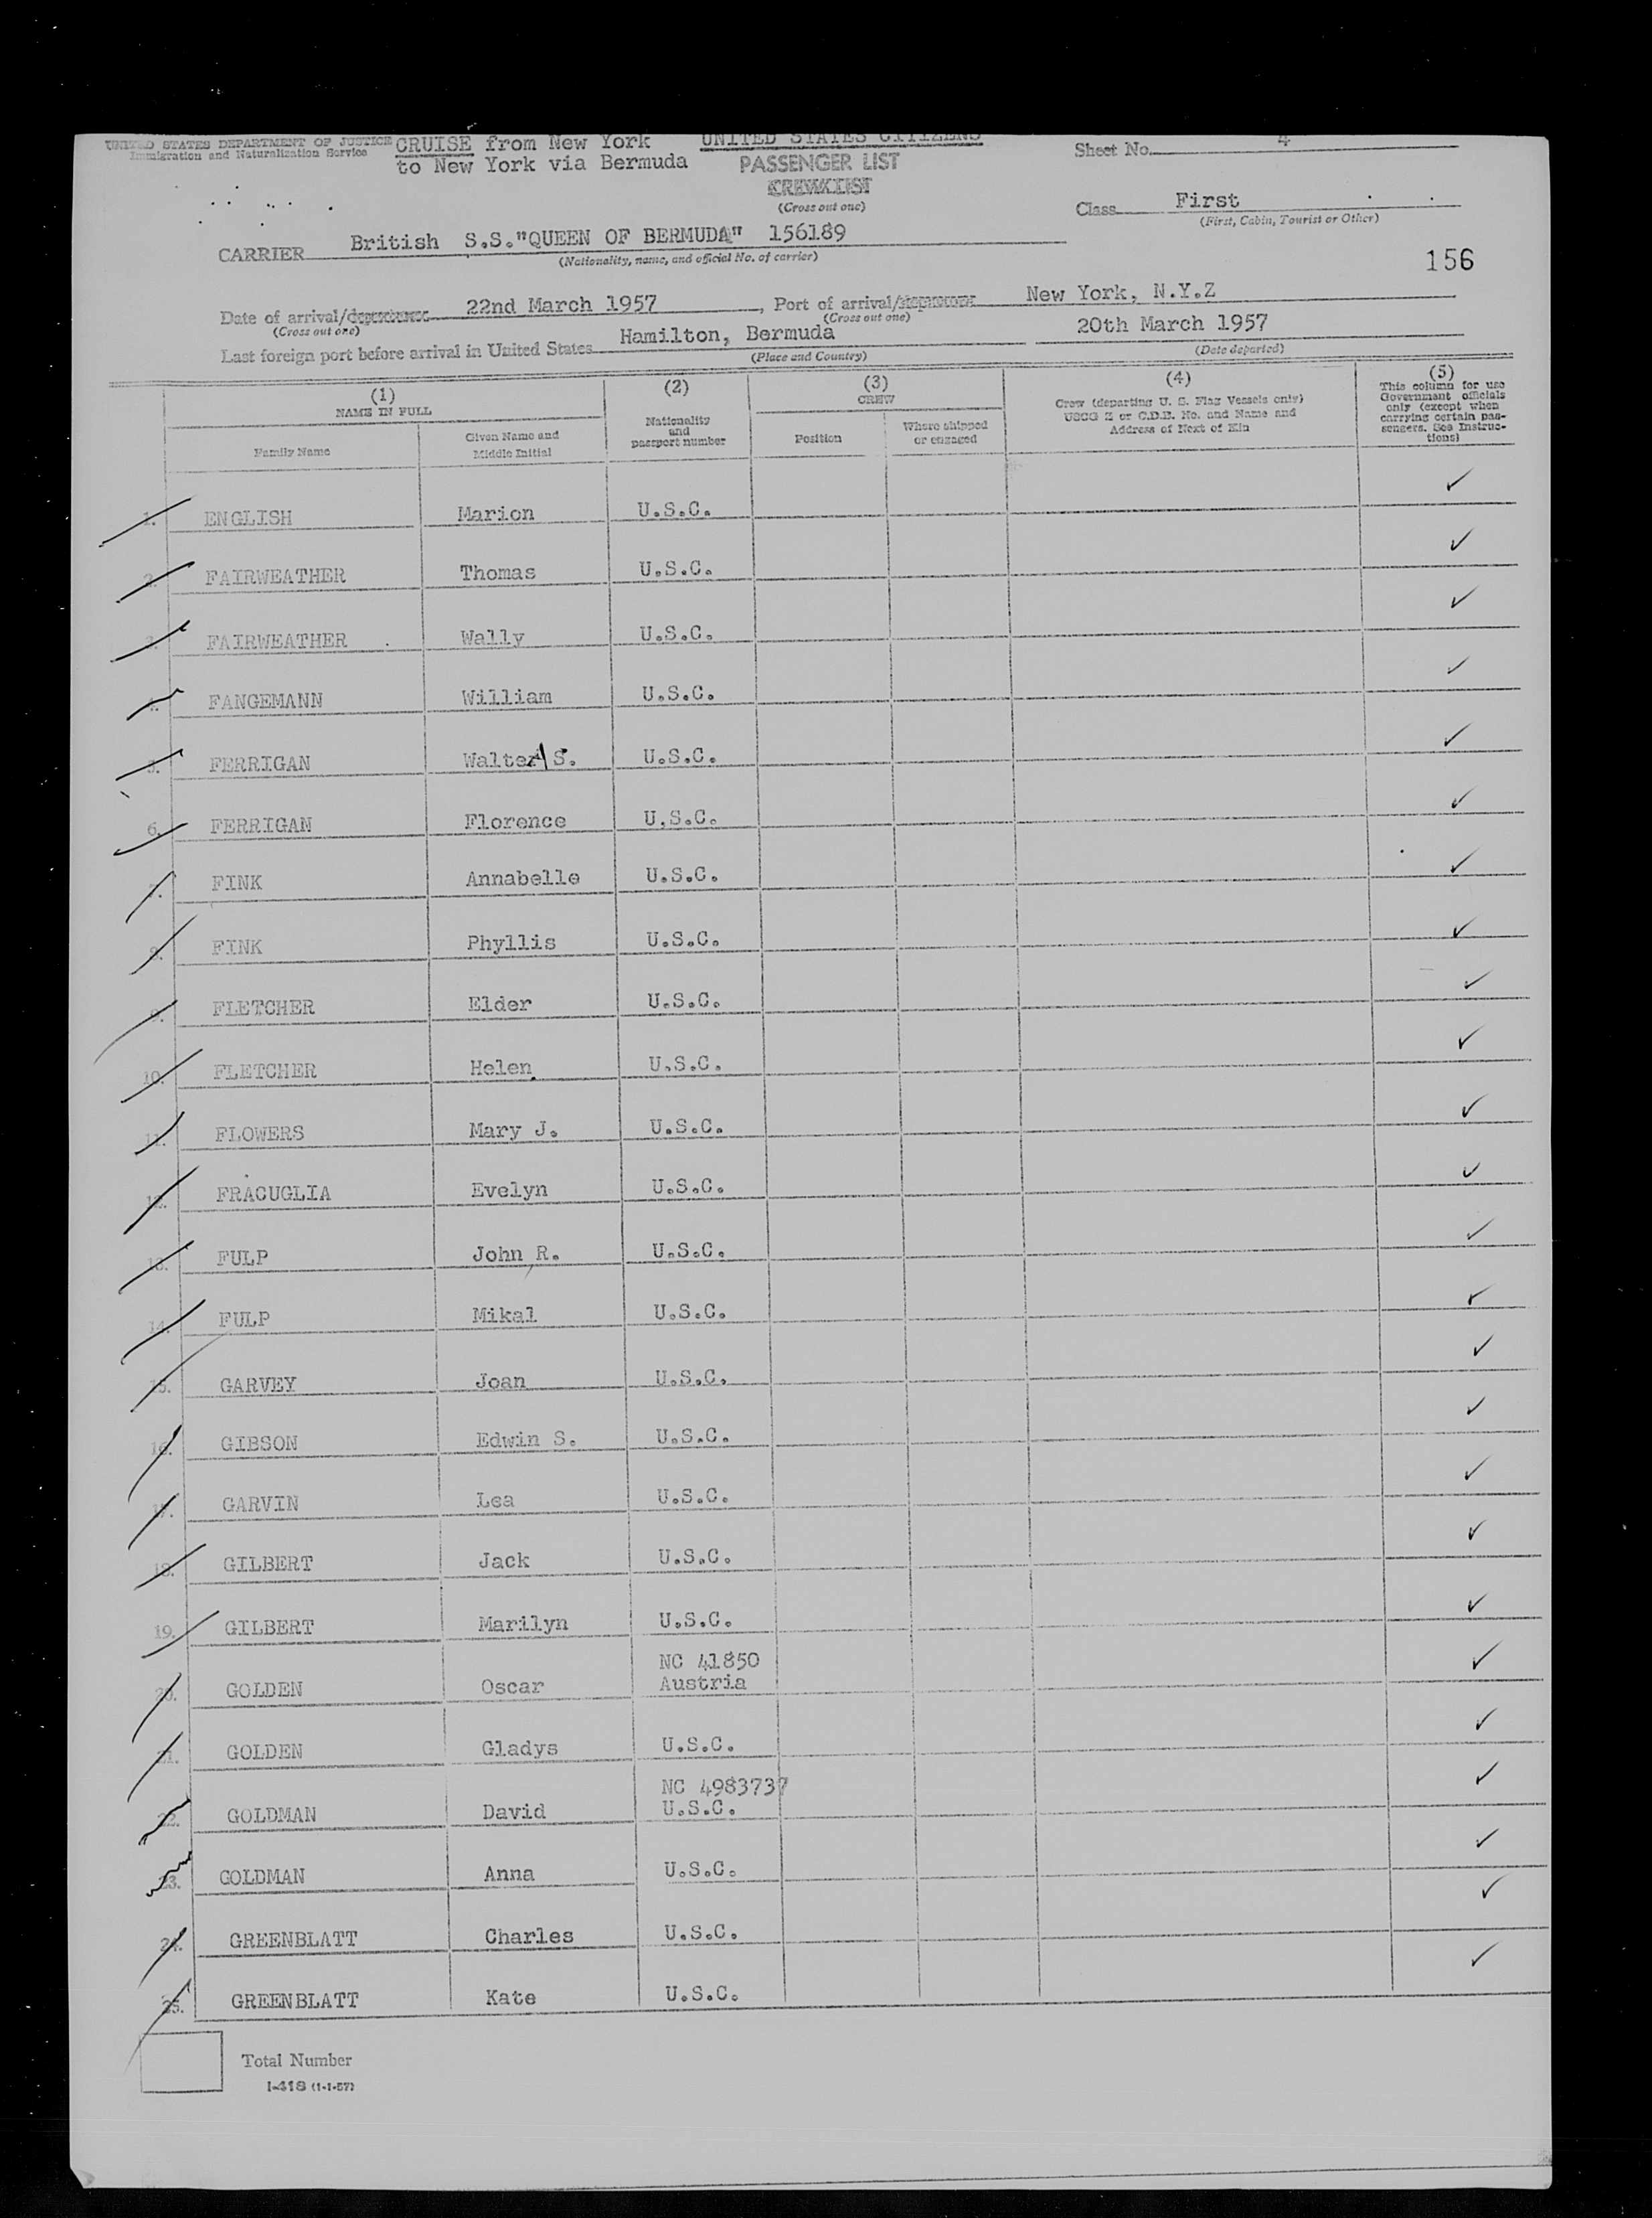 UNITED STATES DEPARTMENT OF JUSTICE
Immigration and Naturalization Service
CRUISE from New York
to New York via Bermuda
UNITED STATES CITIZENS
PASSENGER LIST
CREW LIST
(Cross out one)
Sheet No. 4
Class First
(First, Cabin, Tourist or Other)
CARRIER British S.S."QUEEN OF BERMUDA" 156189
(Nationality, name, and official No. of carrier)
156
Date of arrival/departure 22nd March 1957, Port of arrival/departure New York, N.Y.Z
(Cross out one) (Cross out one)
Last foreign port before arrival in United States Hamilton, Bermuda 20th March 1957
(Place and Country) (Date departed)
(1) NAME IN FULL
Family Name
Given Name and Middle Initial
(2) Nationality and passport number
(3) CREW
Position
Where shipped or engaged
(4) Crew (departing U. S. Flag Vessels only) USCG Z or C.D.B. No. and Name and Address of Next of Kin
(5) This column for use Government officials only (except when carrying certain passengers. See Instructions)
1. ENGLISH Marion U.S.C. ✓
2. FAIRWEATHER Thomas U.S.C. ✓
3. FAIRWEATHER Wally U.S.C. ✓
4. FANGEMANN William U.S.C. ✓
5. FERRIGAN Walter S. U.S.C. ✓
6. FERRIGAN Florence U.S.C. ✓
7. FINK Annabelle U.S.C. ✓
8. FINK Phyllis U.S.C. ✓
9. FLETCHER Elder U.S.C. ✓
10. FLETCHER Helen U.S.C. ✓
11. FLOWERS Mary J. U.S.C. ✓
12. FRACUGLIA Evelyn U.S.C. ✓
13. FULP John R. U.S.C. ✓
14. FULP Mikal U.S.C. ✓
15. GARVEY Joan U.S.C. ✓
16. GIBSON Edwin S. U.S.C. ✓
17. GARVIN Lea U.S.C. ✓
18. GILBERT Jack U.S.C. ✓
19. GILBERT Marilyn U.S.C. ✓
NC 41850
20. GOLDEN Oscar Austria ✓
21. GOLDEN Gladys U.S.C. ✓
NC 4983737
22. GOLDMAN David U.S.C. ✓
23. GOLDMAN Anna U.S.C. ✓
24. GREENBLATT Charles U.S.C. ✓
25. GREENBLATT Kate U.S.C. ✓
Total Number
I-418 (1-1-57)